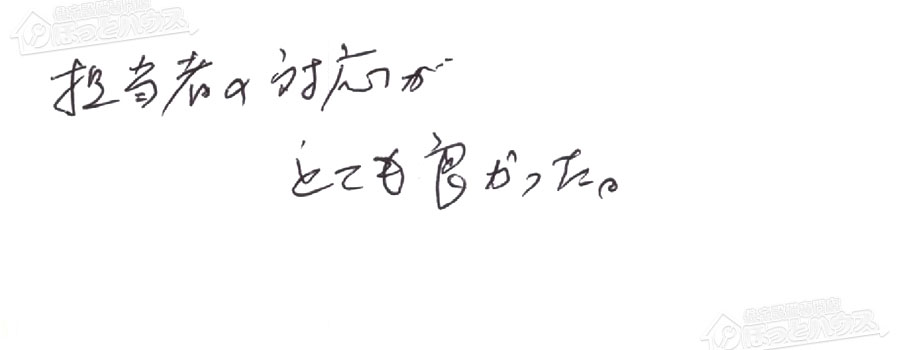 担当者の対応が
とても良かった。
ほっとハウス
ほっとハウス